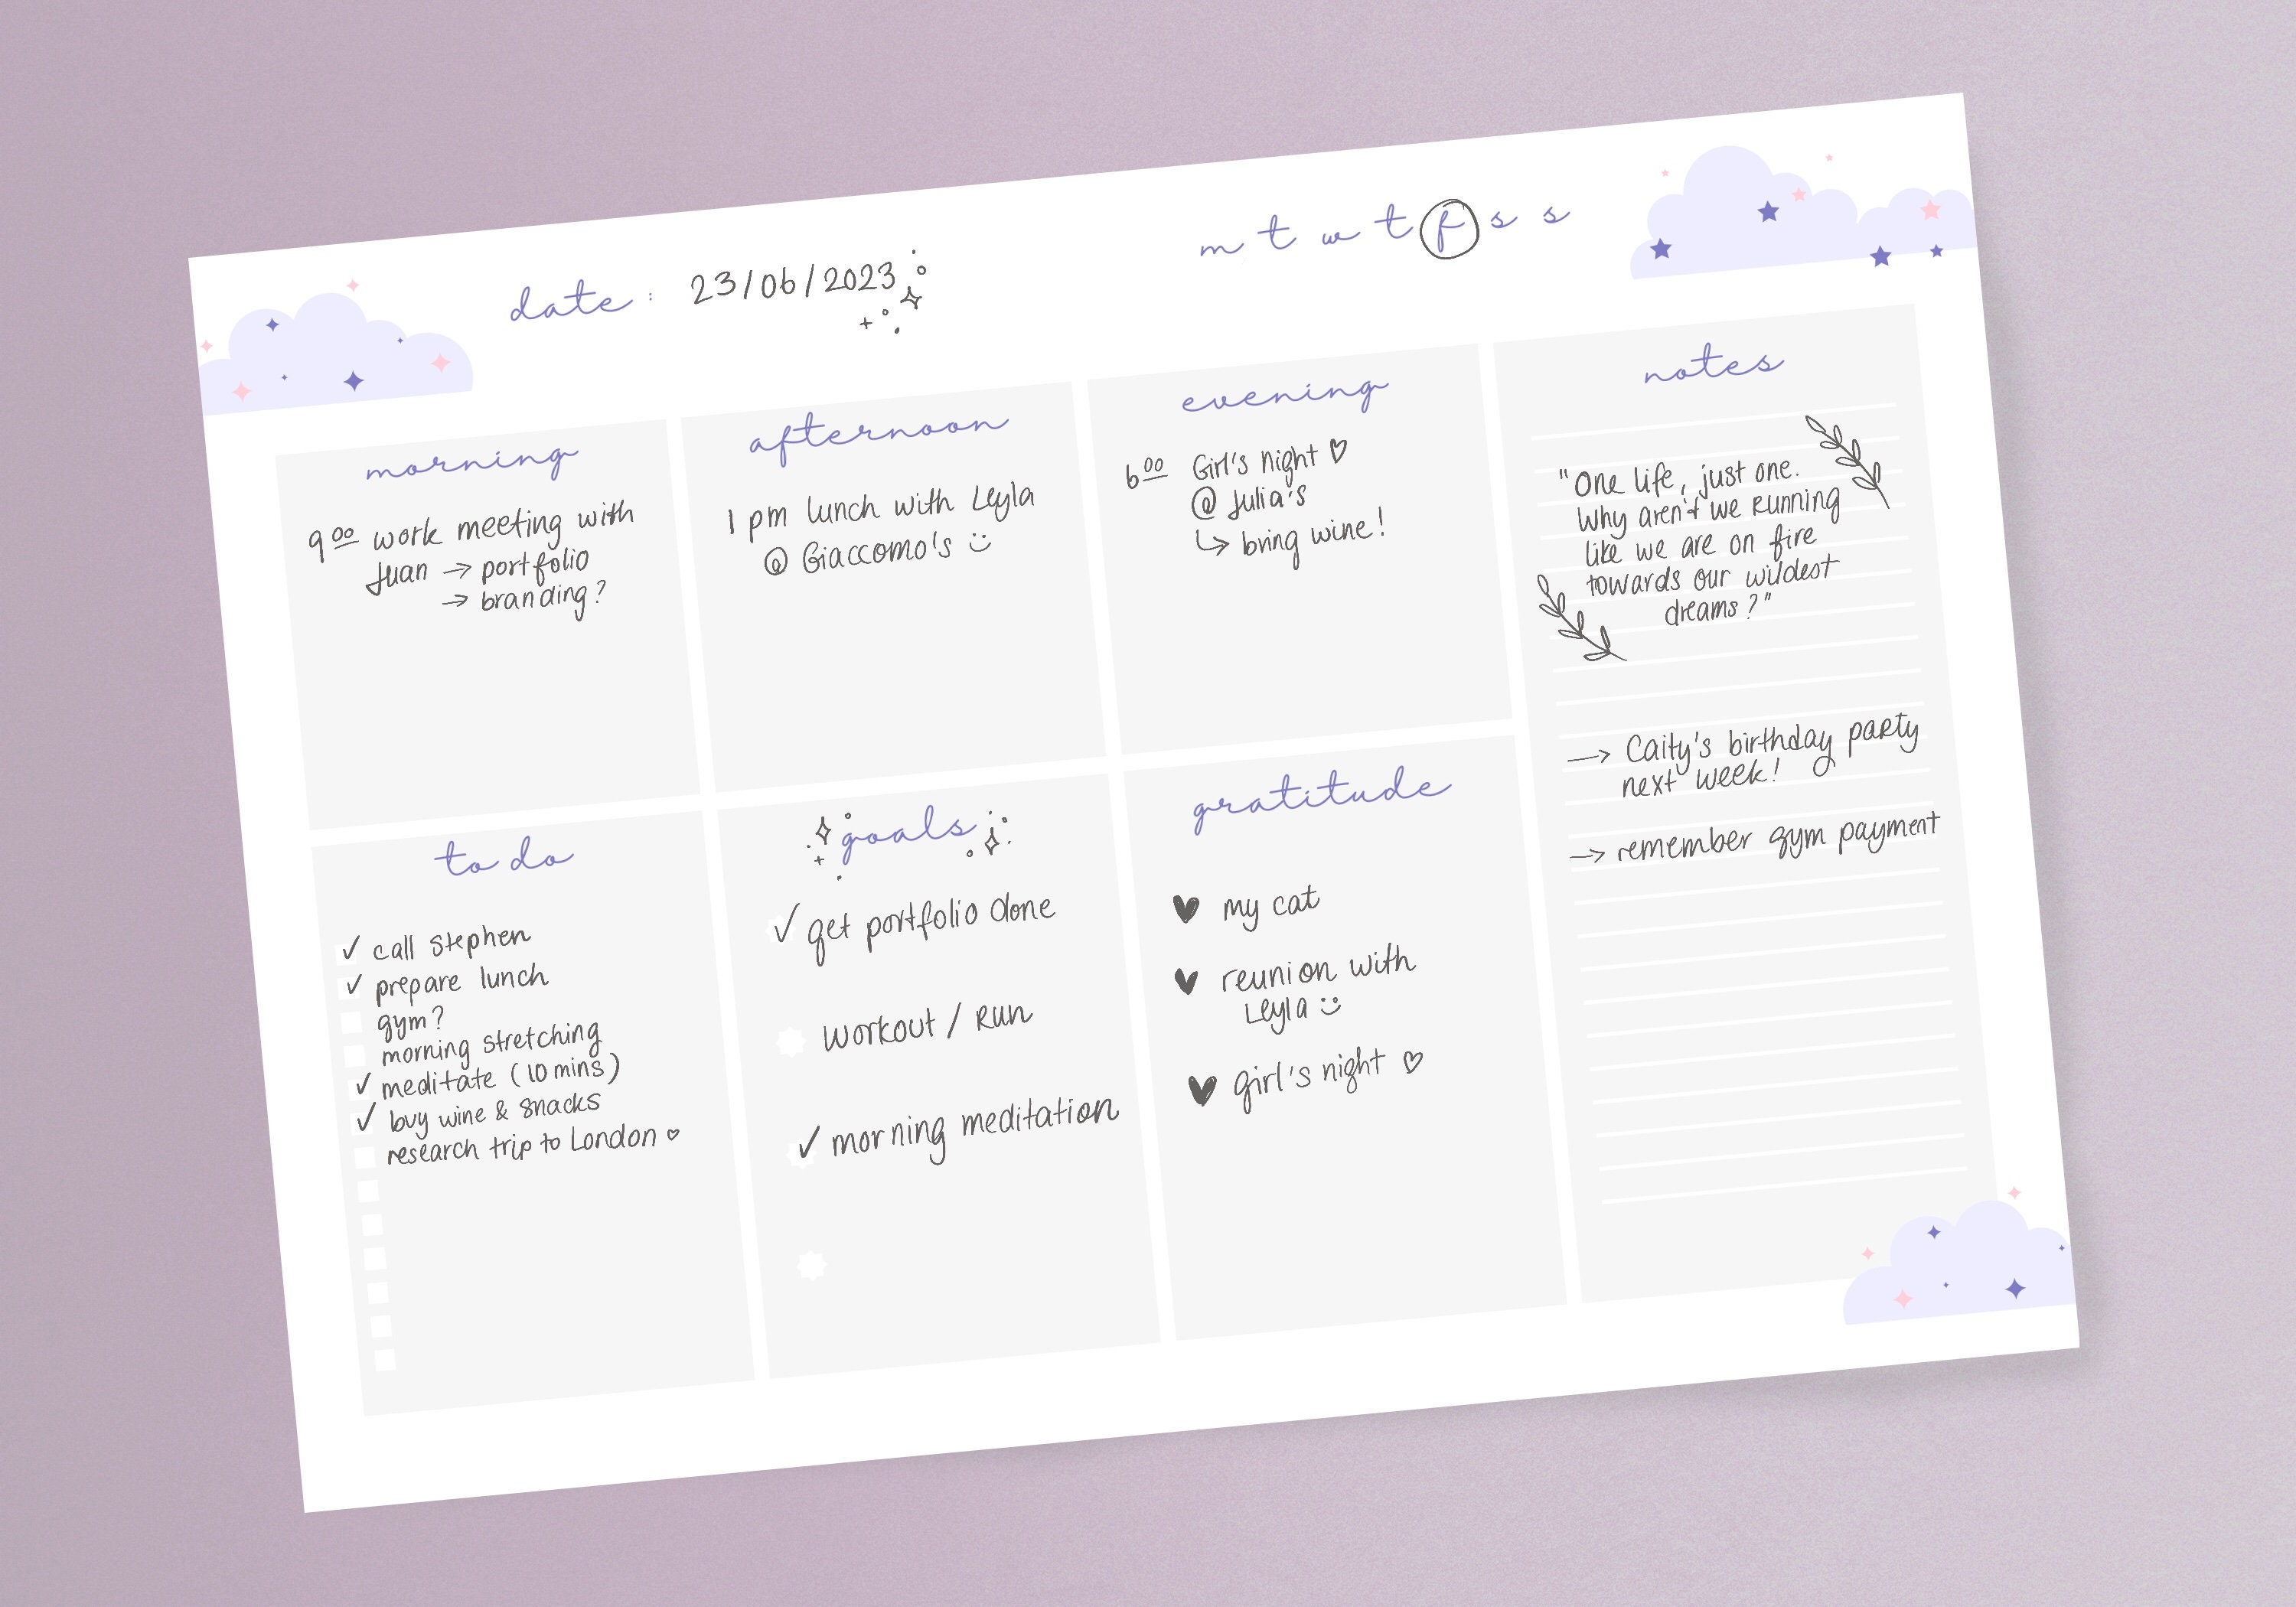 date : 23/06/2023
m t w t f s s
morning
9 00 work meeting with
Juan → portfolio
→ branding?
afternoon
1 pm lunch with Leyla
@ Giaccomo's
evening
6 00 Girl's night ♡
@ Julia's
↳ bring wine!
notes
"One life, just one.
Why aren't we running
like we are on fire
towards our wildest
dreams?"
→ Caity's birthday party
next week!
→ remember gym payment
to do
✓ call stephen
✓ prepare lunch
gym?
morning stretching
✓ meditate (10 mins)
✓ buy wine & snacks
research trip to London ♡
goals
✓ get portfolio done
workout / Run
✓ morning meditation
gratitude
♥ my cat
♥ reunion with
Leyla
♥ girl's night ♡